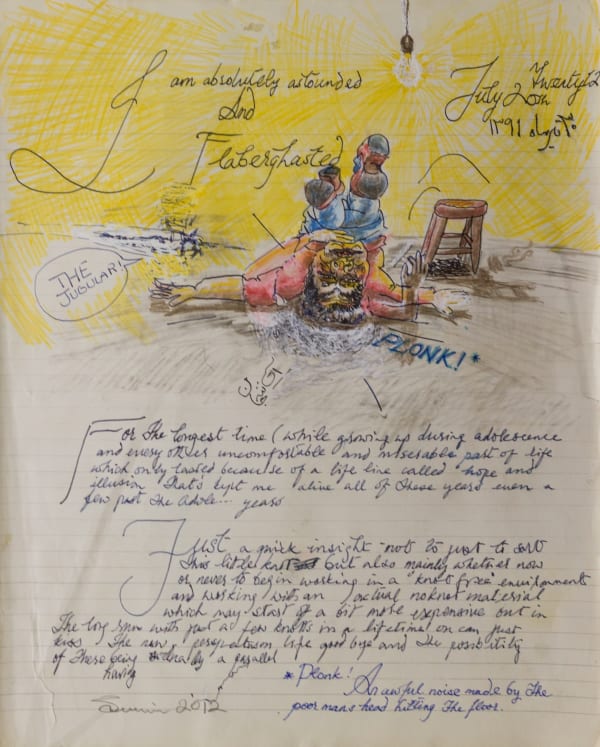 I am absolutely astounded
And
Flaberghasted
July 20th Twenty12
۱۳۹۱
THE
JUGULAR!
PLONK!*
For The longest time (while growing up during adolescence
and every other uncomfortable and miserable part of life
which only lasted because of a life line called hope and
illusion That's kept me alive all of These years even a
few past The adole... years
Just a quick insight not to just to sort
This little knot but also mainly whether now
or never to begin working in a "knot free" environments
and working with an actual noknot material
which may start of a bit more expensive out in
The long with just a few knotts in a lifetime can just
kiss The life good bye and The possibility
of These being a parallel
having
2012
*Plonk!
An awful noise made by The
poor mans head hitting The floor.